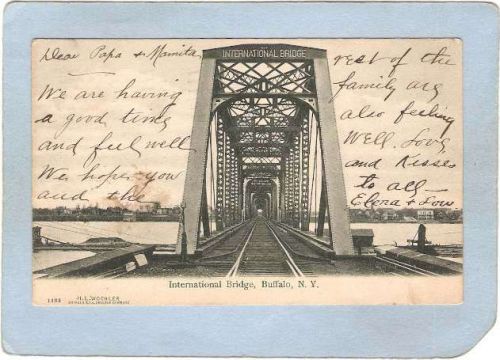 INTERNATIONAL BRIDGE
Dear Papa & Mamita,
We are having
a good time
and feel well
We hope you
and the
rest of the
family are
also feeling
Well. Love
and Kisses
to all
Elora & Lou
International Bridge, Buffalo, N. Y.
1123